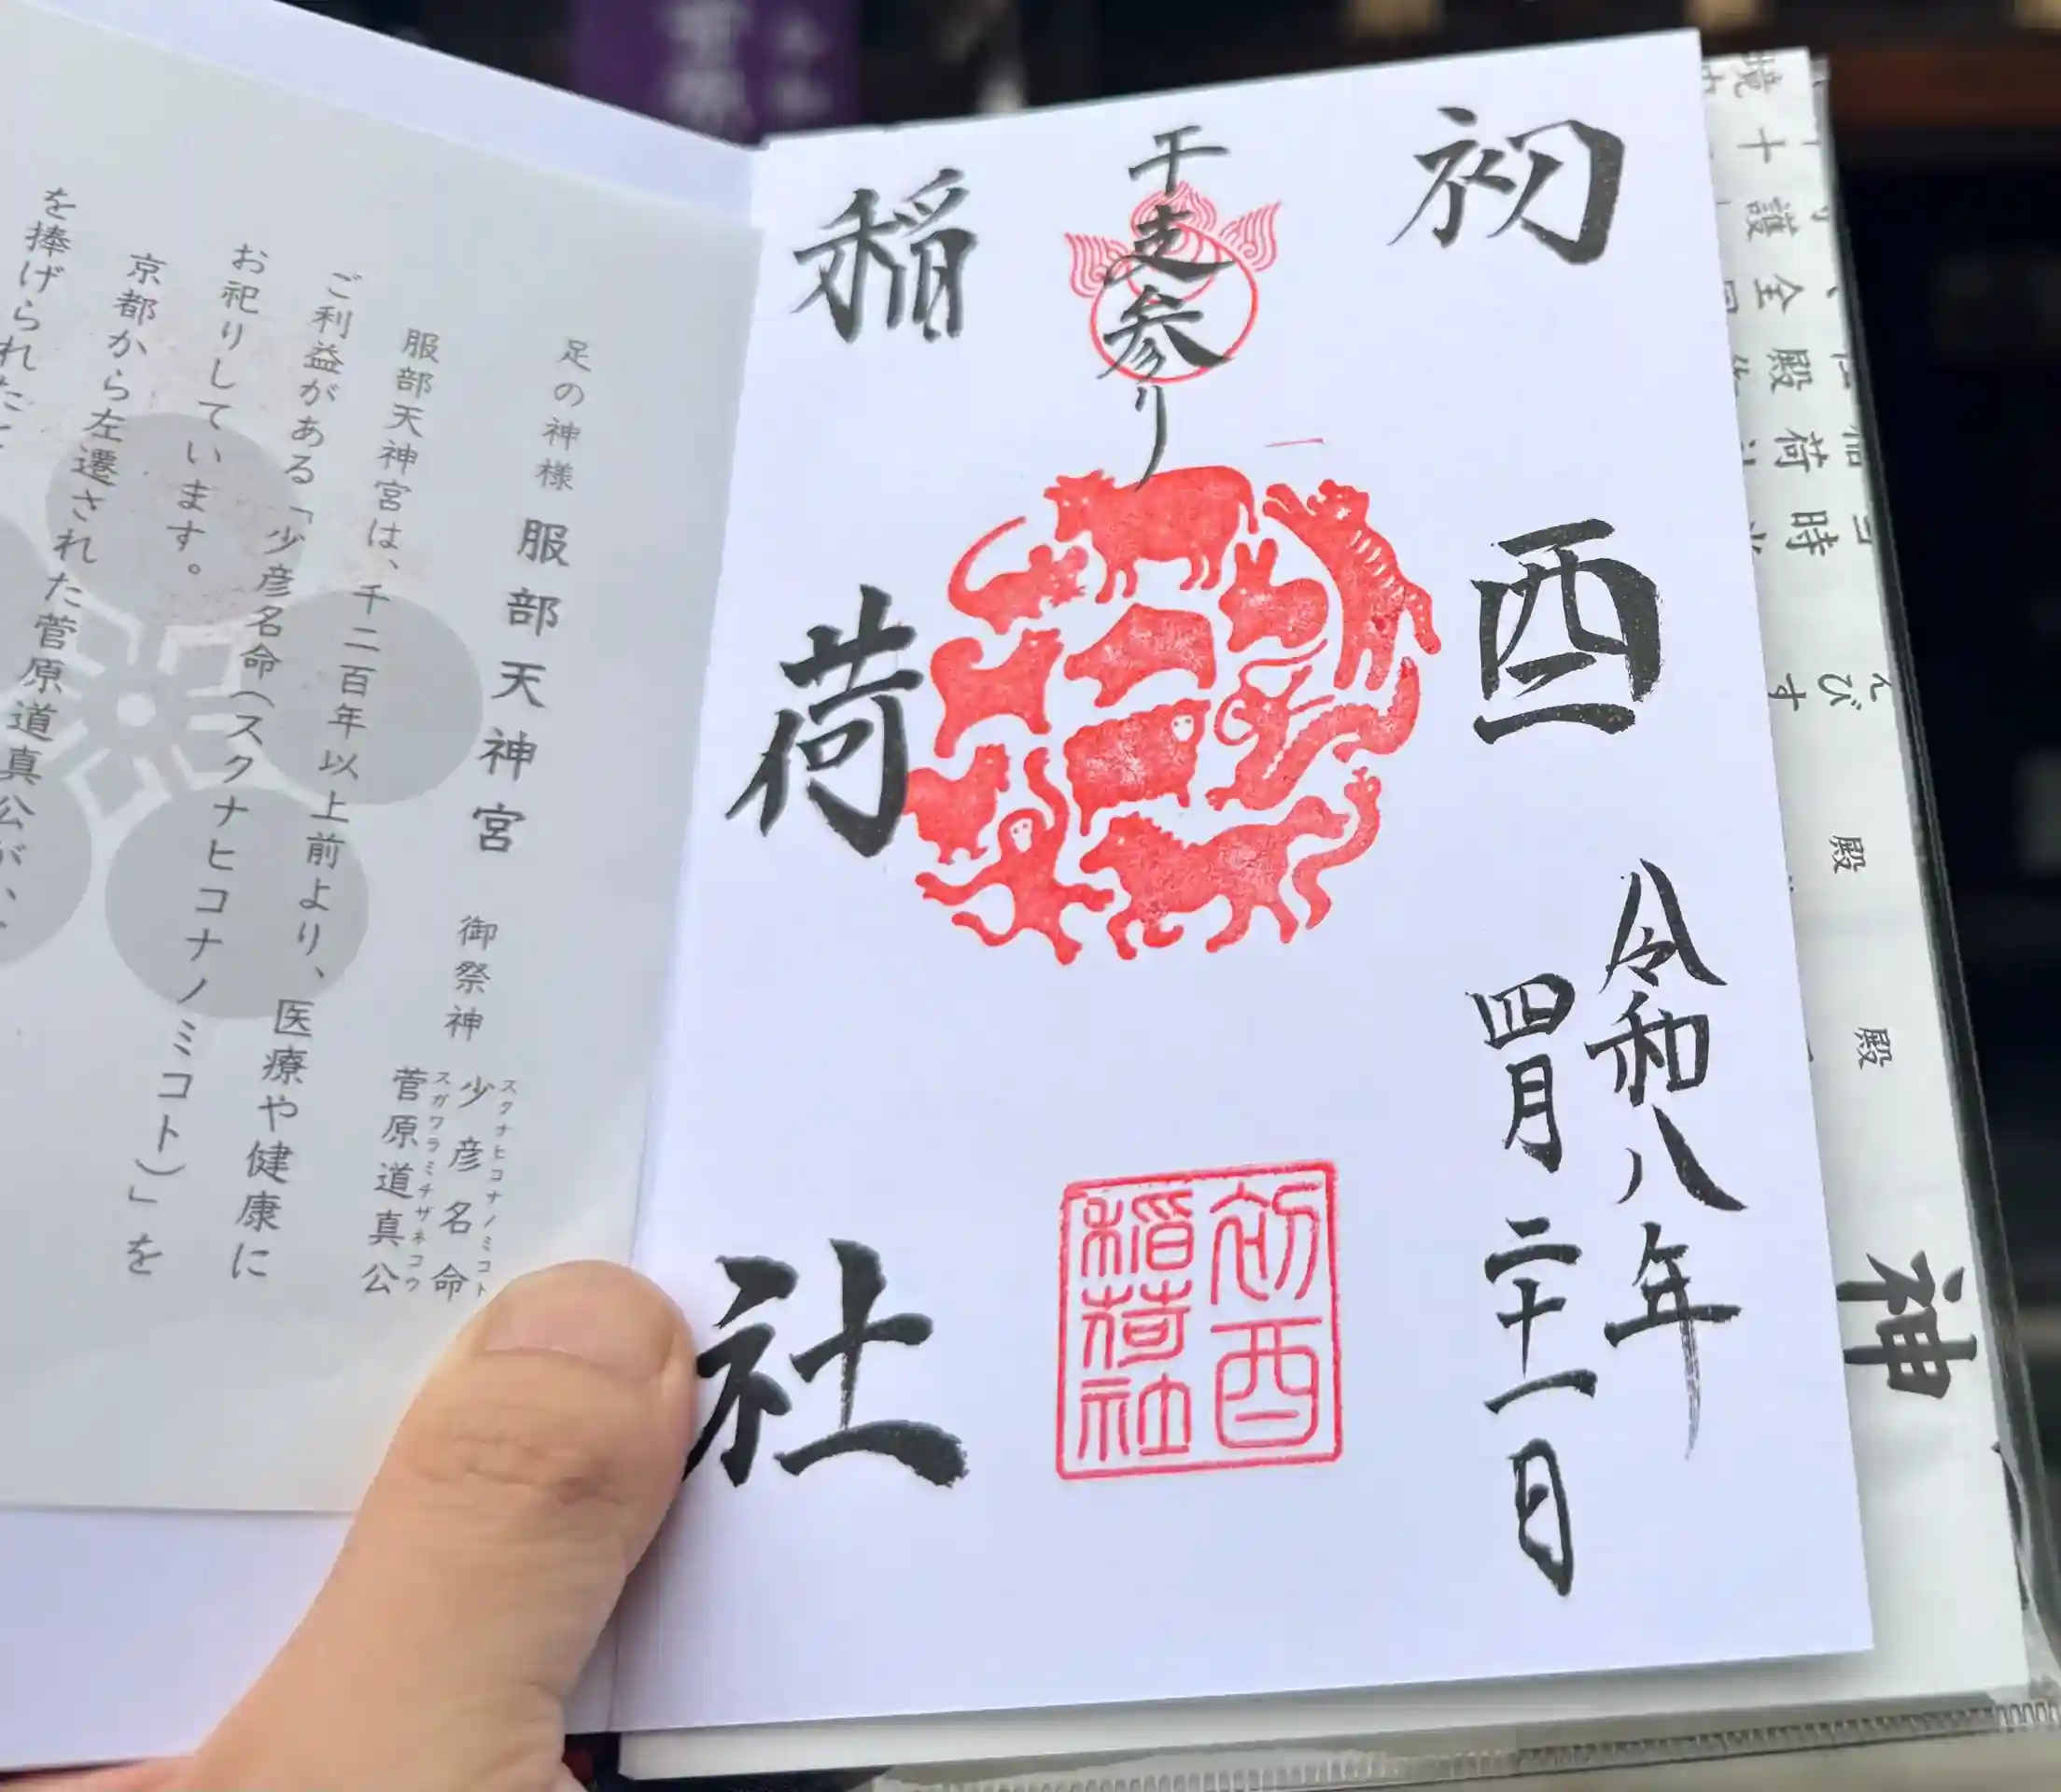 初酉
稲荷社
干支参り
令和八年
四月二十一日
初酉
稲荷社
足の神様 服部天神宮 御祭神 少彦名命
スクナヒコナノミコト
菅原道真公
スガワラミチザネコウ
服部天神宮は、千二百年以上前より、医療や健康に
ご利益がある「少彦名命(スクナヒコナノミコト)」を
お祀りしています。
京都から左遷された菅原道真公が、
を捧げられた
えびす
殿
殿
神